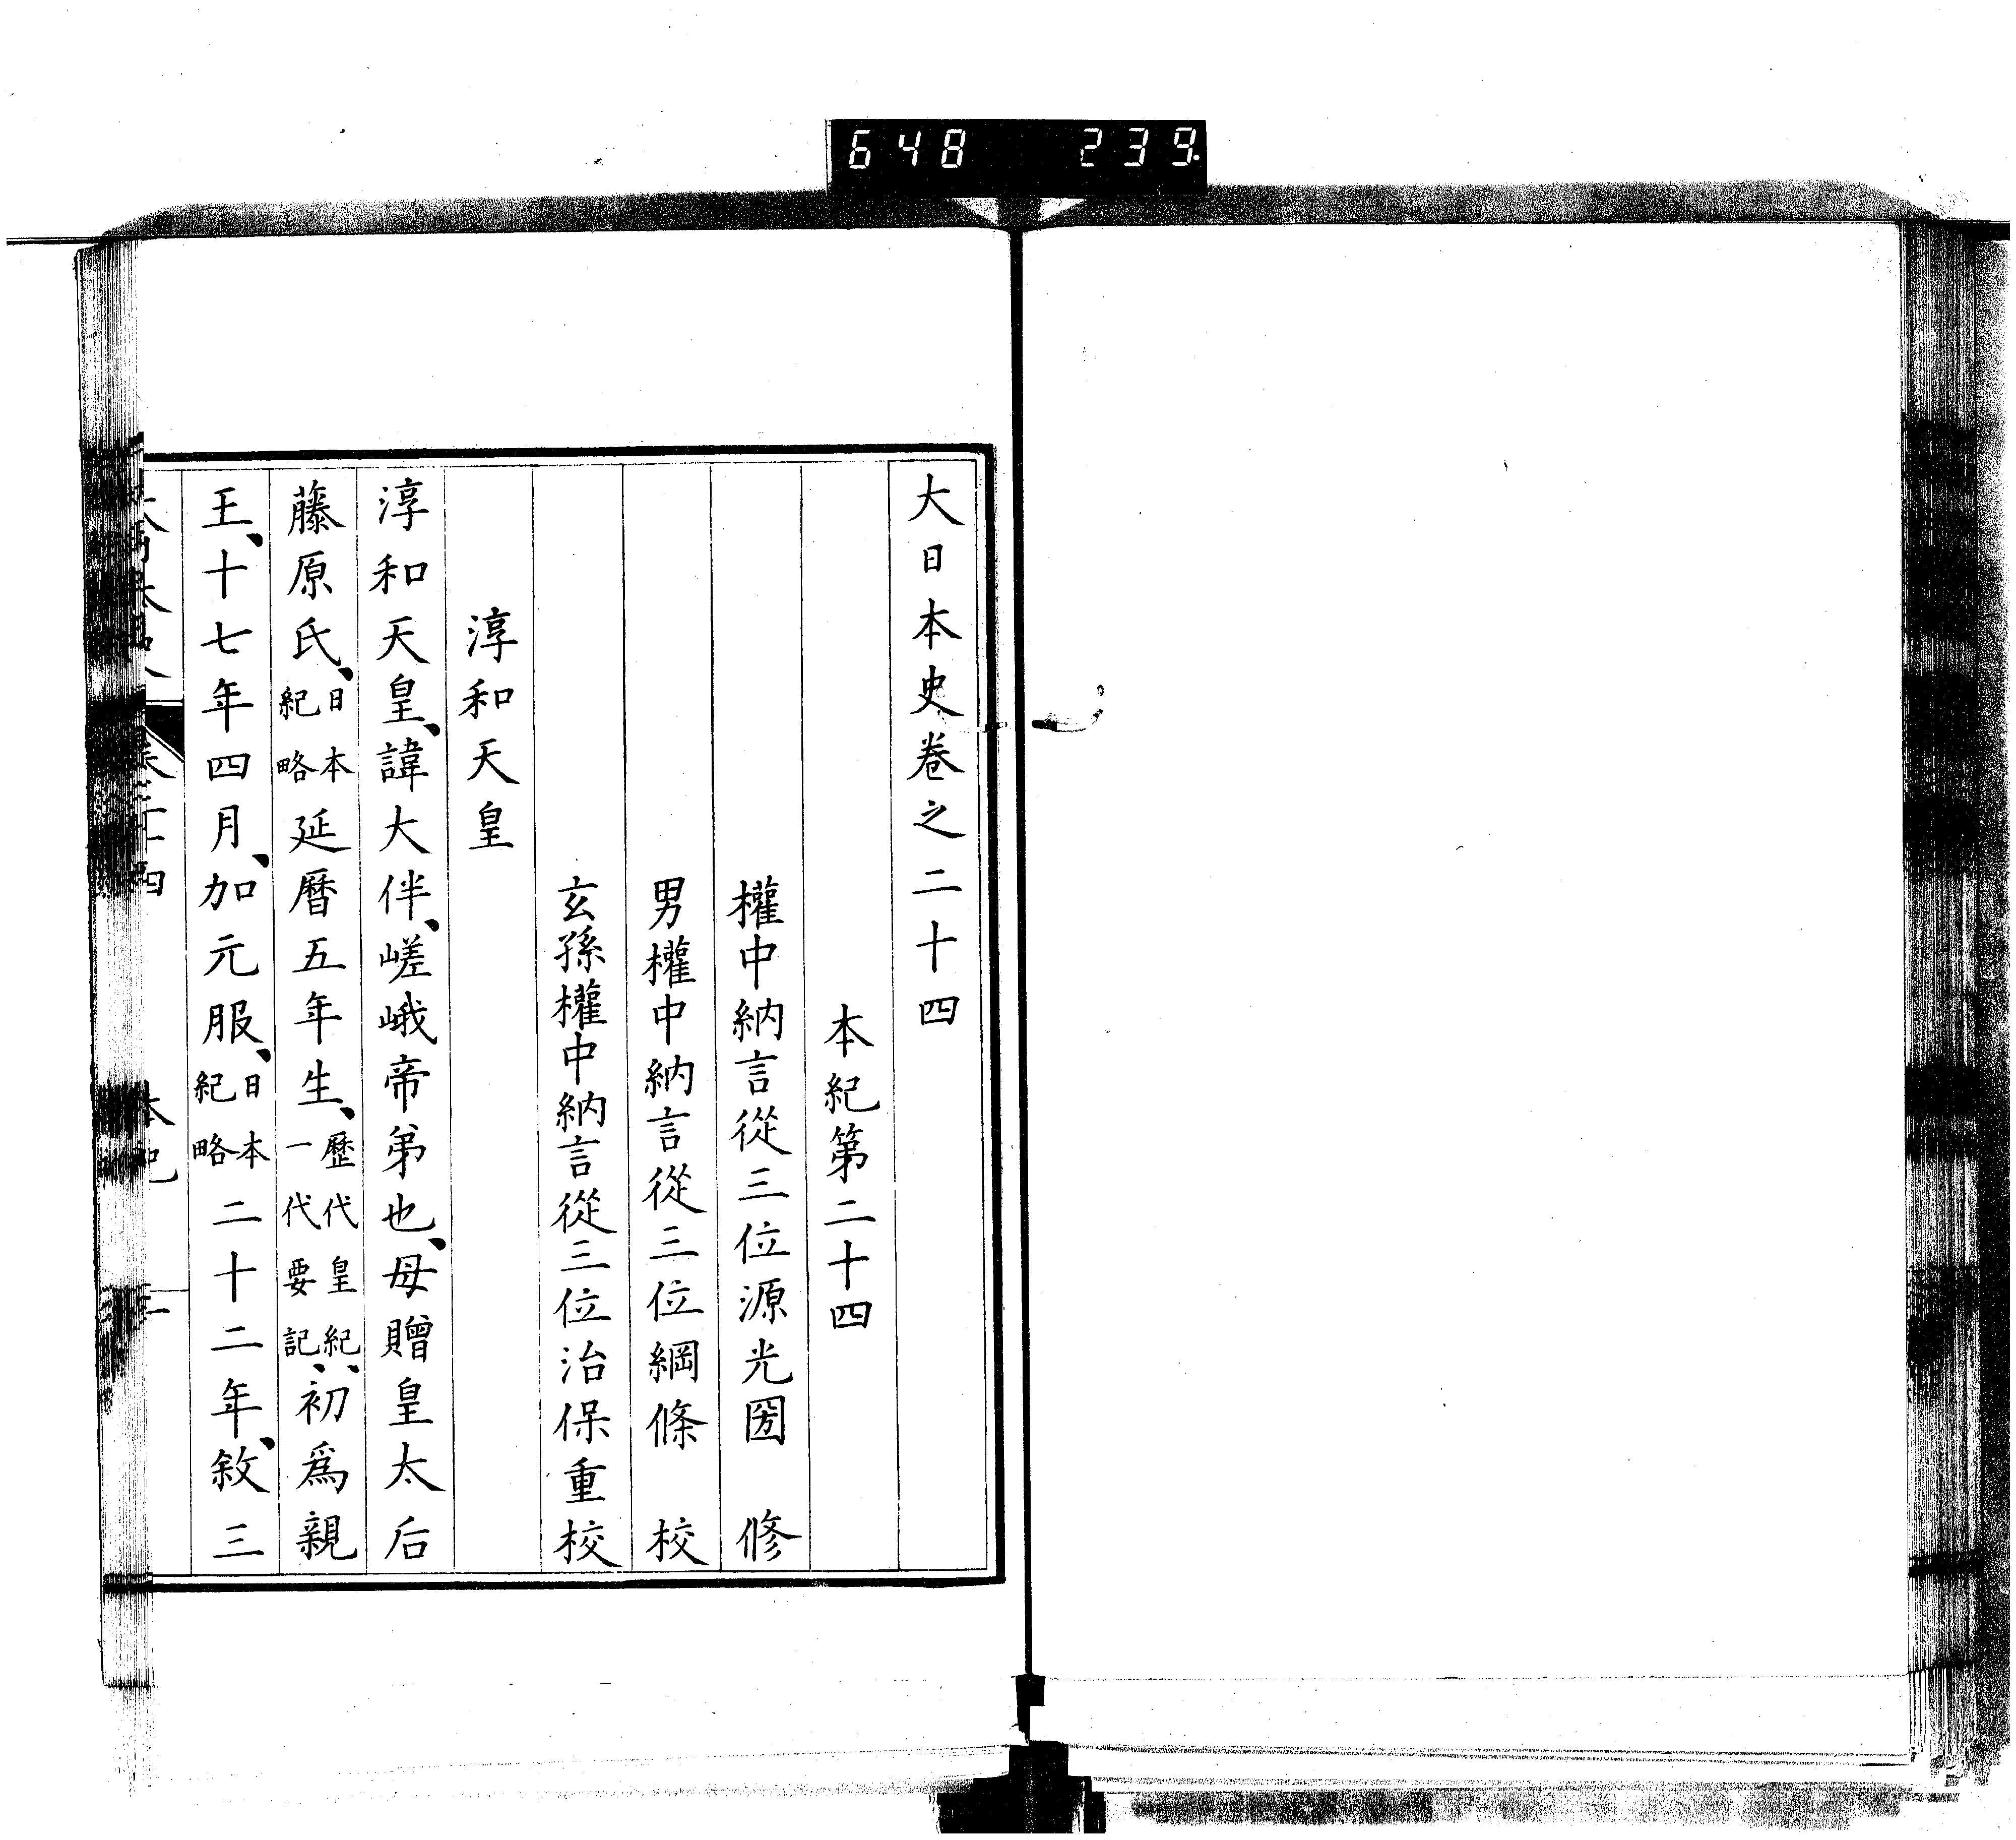 648 239.
大日本史卷之二十四
本紀第二十四
權中納言從三位源光圀 修
男權中納言從三位綱條 校
玄孫權中納言從三位治保重校
淳和天皇
淳和天皇、諱大伴、嵯峨帝弟也、母贈皇太后
藤原氏、日本紀略延曆五年生、歷代皇紀、一代要記、初爲親
王、十七年四月、加元服、日本紀略二十二年、敘三